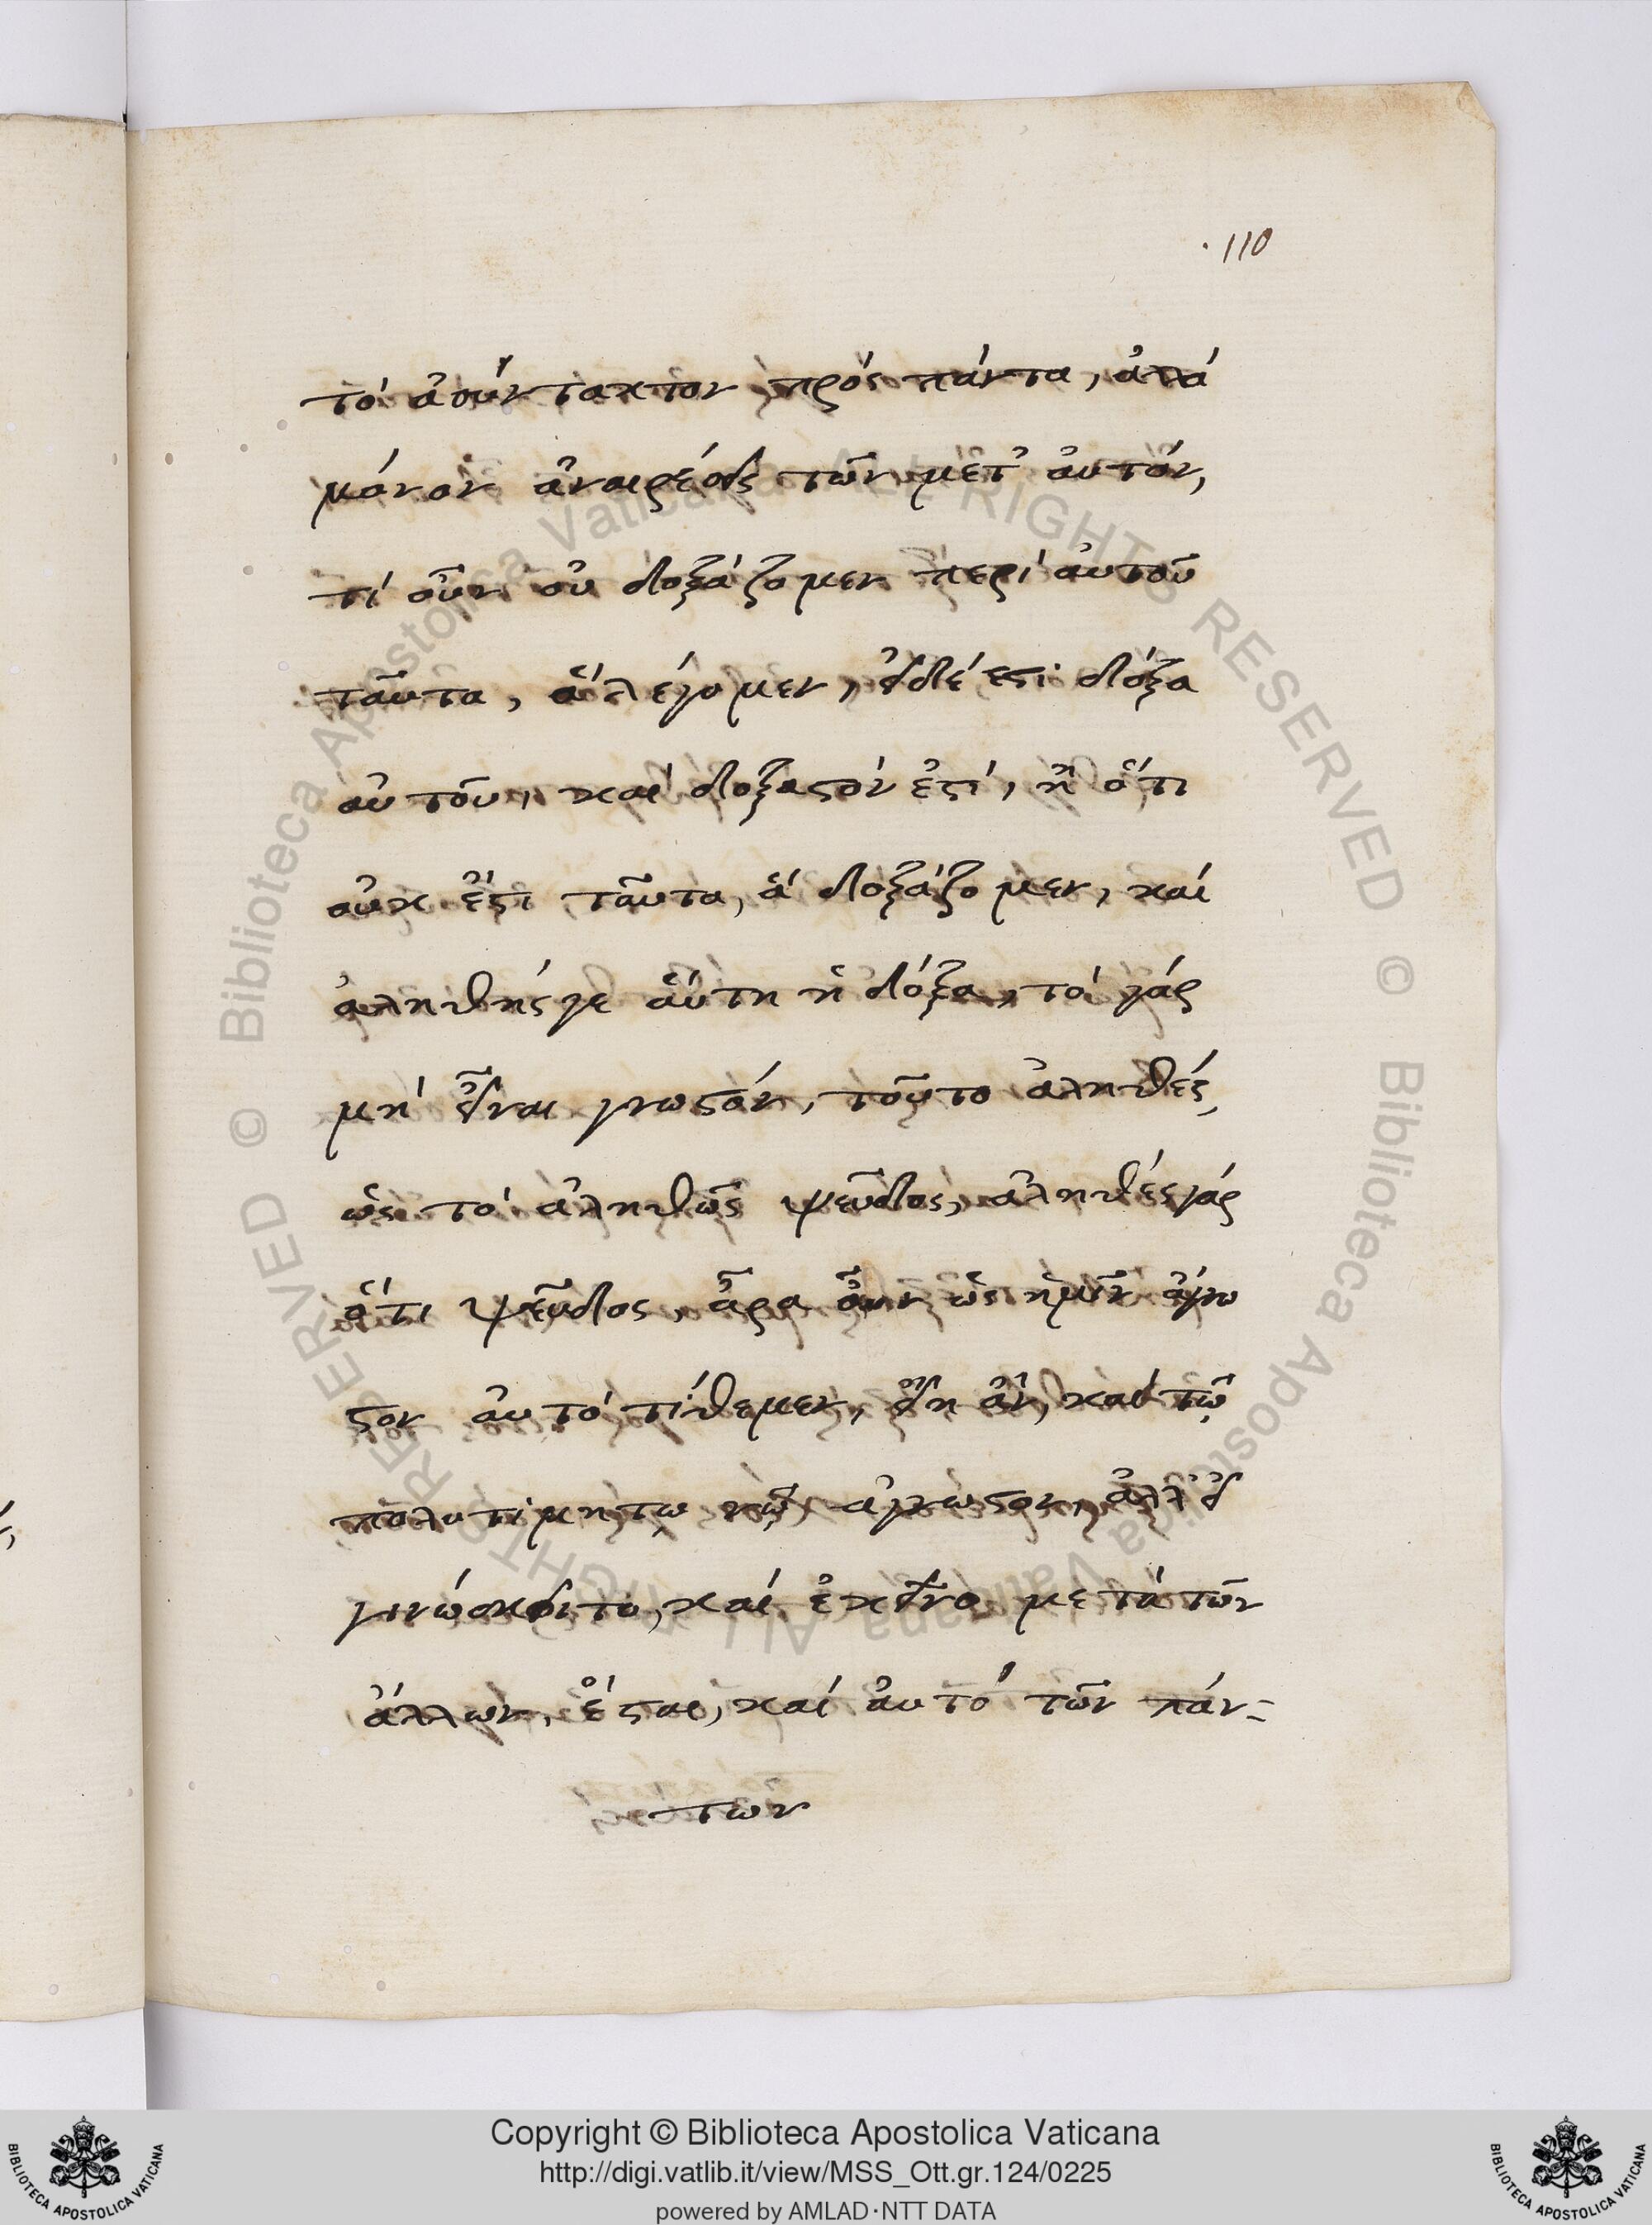 .110
τὸ ἀσύντακτον πρὸς πάντα, ἀλλὰ
μόνον ἀναιρέσεις τῶν μετ' αὐτόν,
τί οὖν οὐ δοξάζομεν περὶ αὐτοῦ
ταῦτα, ἃ λέγομεν, εἰ δέ ἐστι δόξα
αὐτοῦ, καὶ δοξαστόν ἐστί, ἢ ὅτι
οὐκ ἔστι ταῦτα, ἃ δοξάζομεν, καὶ
ἀληθής γε αὕτη ἡ δόξα, τὸ γὰρ
μὴ εἶναι γνωστόν, τοῦτο ἀληθές,
ὡς τὸ ἀληθῶς ψεῦδος, ἀληθὲς γὰρ
ὅτι ψεῦδος, ἆρα οὖν ὡς ἡμῖν ἄγνω
στον αὐτὸ τίθεμεν, εἴη ἂν, καὶ τῷ
πολυτιμήτῳ νῷ ἄγνωστον, ἀλλ' εἰ
γινώσκοιτο, καὶ ἐκεῖνο μετὰ τῶν
ἄλλων, ἔσται, καὶ αὐτὸ τῶν πάν-
των
Copyright © Biblioteca Apostolica Vaticana
http://digi.vatlib.it/view/MSS_Ott.gr.124/0225
powered by AMLAD·NTT DATA
BIBLIOTECA APOSTOLICA VATICANA
BIBLIOTECA APOSTOLICA VATICANA
© Biblioteca Apostolica Vaticana ALL RIGHTS RESERVED
© Biblioteca Apostolica Vaticana ALL RIGHTS RESERVED